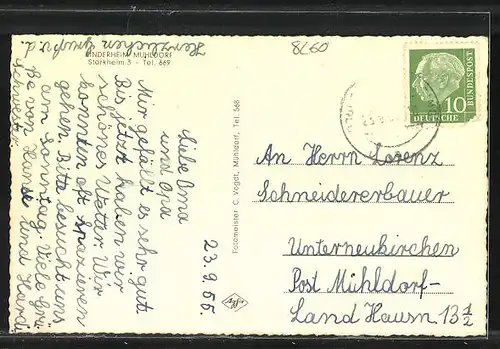 KINDERHEIM MÜHLDORF
Starkheim 3 - Tel. 669
8260
10
DEUTSCHE
BUNDESPOST
23.9.55.
Liebe Oma
und Opa
Mir gefällt es sehr gut.
Bis jetzt haben wir
schönes Wetter. Wir
konnten oft spazieren
gehen. Bitte besucht uns
am Sonntag. Viele Grü
ße von Hunde und Hardi
Herzlichen Gruß v. d.
Schwester
Fotomeister C. Vogdt, Mühldorf, Tel. 568
Agfa
An Herrn Lorenz
Schneidererbauer
Unterneukirchen
Post Mühldorf-
Land Hausn 13 1/2